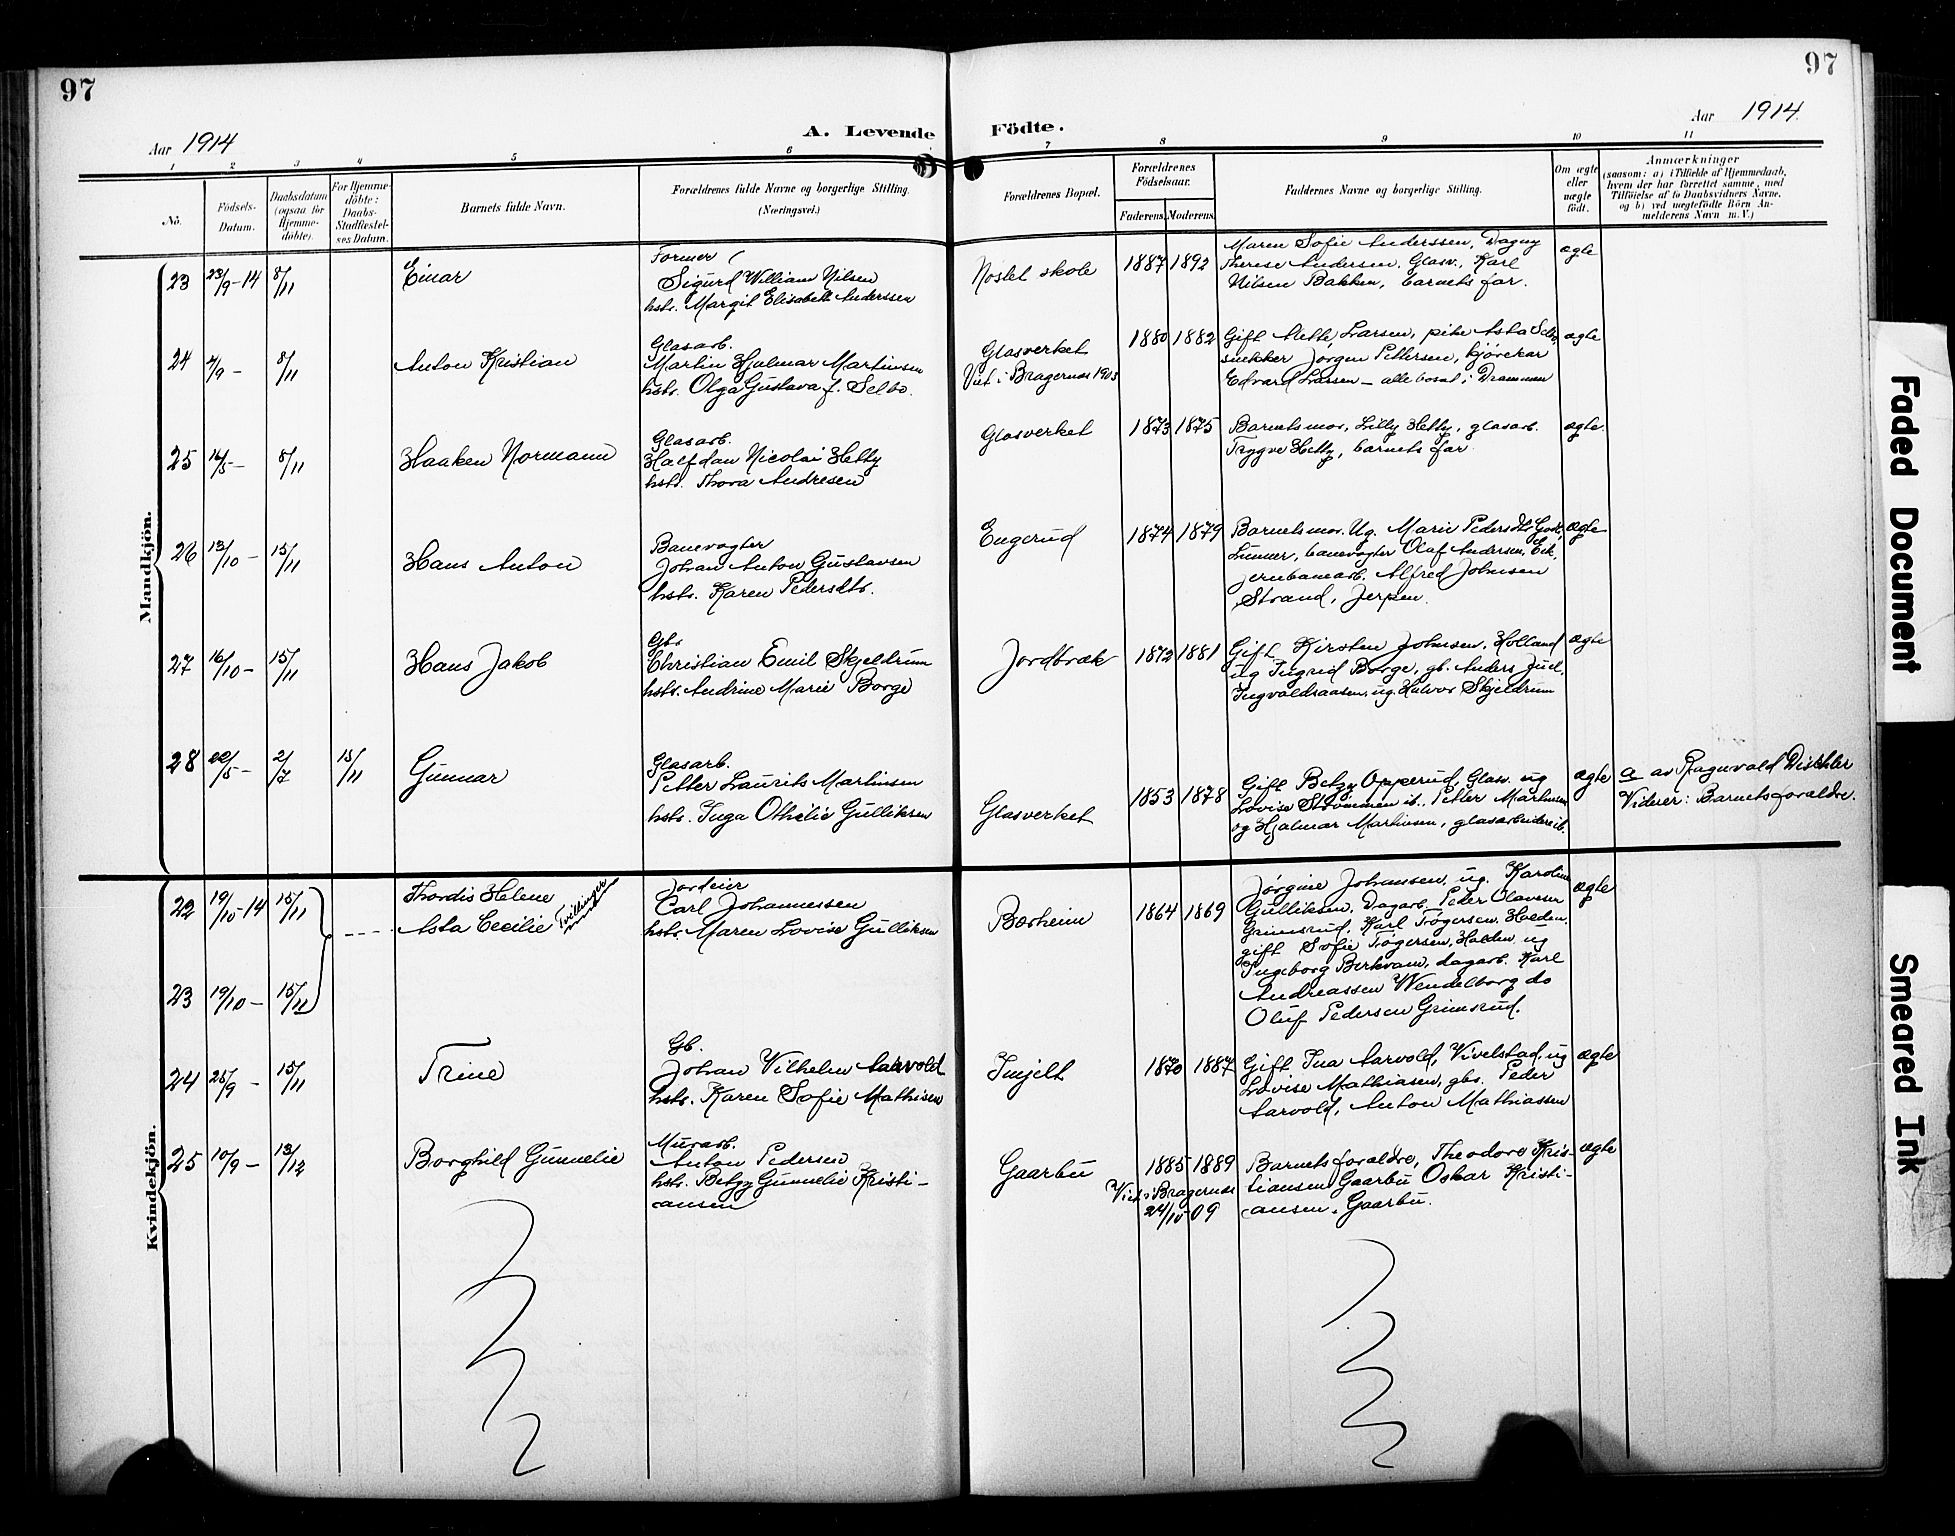 97
97
Aar 1914
A. Levende Födte.
Aar 1914.
1 2 3 4 5 6 7 8 9 10 11
No.
Födsels-Datum.
Daabsdatum (ogsaa for Hjemme-döbte).
For Hjemme-döbte: Daabs-Stadfæstel-ses Datum.
Barnets fulde Navn.
Forældrenes fulde Navne og borgerlige Stilling.
(Næringsvei.)
Forældrenes Bopæl.
Forældrenes Födselsaar.
Faderens. Moderens.
Faddernes Navne og borgerlige Stilling.
Om ægte eller uægte födt.
Anmærkninger
(saasom: a) i Tilfælde af Hjemmedaab,
hvem der har forrettet samme, med
Tilföielse af to Daabsvidners Navne,
og b) ved uægtefödte Börn An-
melderens Navn m. V.)
Mandkjön.
23 23/9-14 8/11 Einar
Former
Sigurd William Nilsen
hstr. Margit Elisabeth Anderssen
Nostet skole 1887 1892
Maren Sofie Anderssen, Dagny
Therese Andersen, Glasv., Karl
Nilsen Bakken, barnets far.
ægte
24 2/9 - 8/11 Anton Kristian
Glasarb.
Martin Hjalmar Martinsen
hstr. Olga Gustava f. Selbo.
Glasverket
Viet i Bragernæs 1903
1880 1882
Gift Mette Larsen, pike Asta
snekker Jørgen Pettersen, kjørekar
Edvard Larsen - alle bosat i Drammen
ægte
25 16/5 - 8/11 Haaken Normann
Glasarb.
Halfdan Nicolai Hetty
hstr. Thora Andresen
Glasverket 1873 1875
Barnets mor, Lilly Hetty, glasarb.
Trygve Hetty, barnets far.
ægte.
26 13/10 - 15/11 Hans Anton
Banevogter
Johan Anton Gustavsen
hstr. Karen Pedersdtr.
Engerud 1874 1879
Barnets mor. Ug. Marie Pedersdtr.
Lunner, banevogter Olaf Andersen, Eik,
jernbanearb. Alfred Johnsen
Strand, Jerpen.
ægte
27 16/10 - 15/11 Hans Jakob
Gbr.
Christian Emil Skjeldrum
hstr. Andrine Marie Borge
Jordbræk 1872 1881
Gift Kirsten Johnsen, Holland
ug Ingrid Borge, gb. Anders Juel
Ingvaldsaasen, ug. Halvor Skjeldrum
ægte
28 22/5 - 2/7 15/11 Gunnar
Glasarb.
Petter Laurits Martinsen
hstr. Inga Othilie Gulliksen
Glasverket 1853 1878
Gift Betzy Opperud, Glasv. ug
Lovise Strømmen ib., Petter Martinsen
og Hjalmar Martinsen, glasarbeidere ib.
ægte
a av Ragnvald Dischler
Vidner: Barnets forældre.
Kvindekjön.
22 19/10-14 15/11 Thordis Helene
23 19/10 - 15/11 Asta Cecilie Tvillinger
Jordeier
Carl Johannessen
hstr. Maren Lovise Gulliksen
Borheim 1864 1869
Jørgine Johansen, ug. Karoline
Gulliksen, Dagarb. Peder Olavesen
Grimsrud, Karl Trøgersen, Holden,
gift Sofie Trøgersen, Holden, ug
Ingeborg Berkvam, dagarb. Karl
Andreassen Wendelborg do
Oluf Pedersen Grimsrud.
ægte
24 25/9 - 15/11 Trine
Gb.
Johan Vilhelm Aarvold
hstr. Karen Sofie Mathisen
Imjelt 1870 1887
Gift Ina Aarvold, Vivelstad, ug
Lovise Mathiasen, gbr. Peder
Aarvold, Anton Mathiassen
ægte
25 10/9 - 13/12 Borghild Gunnelie
Murarb.
Anton Pedersen
hstr. Betzy Gunnelie Kristi-
ansen
Gaarbu 1885 1889
Viet i Bragernæs
24/10-09
Barnets forældre, Theodore Kris-
tiansen Gaarbu Oskar Kristi-
ansen, Gaarbu.
ægte
Faded Document
Smeared Ink